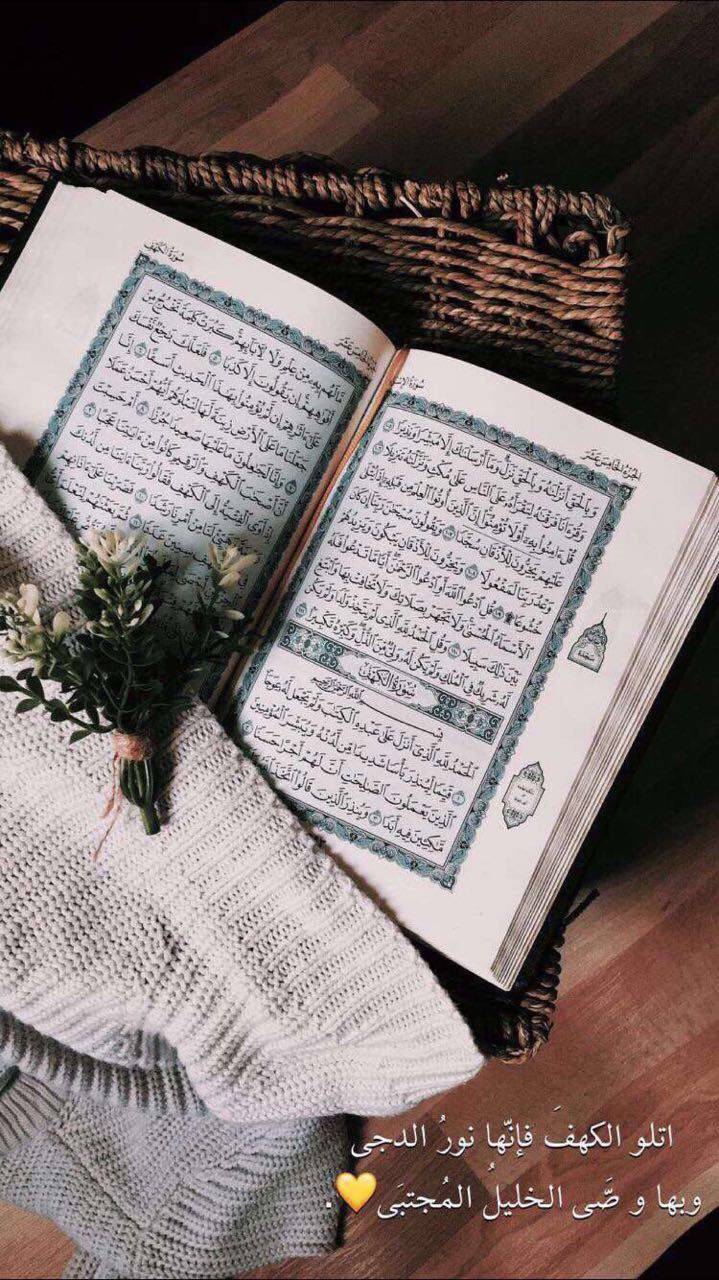 الجُزْءُ الخَامِسَ عَشَرَ
وَبِٱلْحَقِّ أَنزَلْنَٰهُ وَبِٱلْحَقِّ نَزَلَ وَمَآ أَرْسَلْنَٰكَ إِلَّا مُبَشِّرًا وَنَذِيرًا ١٠٥
وَقُرْءَانًا فَرَقْنَٰهُ لِتَقْرَأَهُۥ عَلَى ٱلنَّاسِ عَلَىٰ مُكْثٍ وَنَزَّلْنَٰهُ تَنزِيلًا ١٠٦
قُلْ ءَامِنُوا۟ بِهِۦٓ أَوْ لَا تُؤْمِنُوٓا۟ إِنَّ ٱلَّذِينَ أُوتُوا۟ ٱلْعِلْمَ مِن قَبْلِهِۦٓ إِذَا يُتْلَىٰ
عَلَيْهِمْ يَخِرُّونَ لِلْأَذْقَانِ سُجَّدًا ١٠٧ وَيَقُولُونَ سُبْحَٰنَ رَبِّنَآ إِن كَانَ
وَعْدُ رَبِّنَا لَمَفْعُولًا ١٠٨ وَيَخِرُّونَ لِلْأَذْقَانِ يَبْكُونَ وَيَزِيدُهُمْ
خُشُوعًا ۩ ١٠٩ قُلِ ٱدْعُوا۟ ٱللَّهَ أَوِ ٱدْعُوا۟ ٱلرَّحْمَٰنَ أَيًّا مَّا تَدْعُوا۟ فَلَهُ
ٱلْأَسْمَآءُ ٱلْحُسْنَىٰ وَلَا تَجْهَرْ بِصَلَاتِكَ وَلَا تُخَافِتْ بِهَا وَٱبْتَغِ
بَيْنَ ذَٰلِكَ سَبِيلًا ١١٠ وَقُلِ ٱلْحَمْدُ لِلَّهِ ٱلَّذِى لَمْ يَتَّخِذْ وَلَدًا وَلَمْ يَكُن
لَّهُۥ شَرِيكٌ فِى ٱلْمُلْكِ وَلَمْ يَكُن لَّهُۥ وَلِىٌّ مِّنَ ٱلذُّلِّ وَكَبِّرْهُ تَكْبِيرًا ١١١
سُورَةُ الكَهْفِ
بِسْمِ ٱللَّهِ ٱلرَّحْمَٰنِ ٱلرَّحِيمِ
ٱلْحَمْدُ لِلَّهِ ٱلَّذِىٓ أَنزَلَ عَلَىٰ عَبْدِهِ ٱلْكِتَٰبَ وَلَمْ يَجْعَل لَّهُۥ عِوَجَا ١
قَيِّمًا لِّيُنذِرَ بَأْسًا شَدِيدًا مِّن لَّدُنْهُ وَيُبَشِّرَ ٱلْمُؤْمِنِينَ
ٱلَّذِينَ يَعْمَلُونَ ٱلصَّٰلِحَٰتِ أَنَّ لَهُمْ أَجْرًا حَسَنًا ٢
مَّٰكِثِينَ فِيهِ أَبَدًا ٣ وَيُنذِرَ ٱلَّذِينَ قَالُوا۟ ٱتَّخَذَ
سُورَةُ الكَهْفِ
مَّا لَهُم بِهِۦ مِنْ عِلْمٍ وَلَا لِءَابَآئِهِمْ كَبُرَتْ كَلِمَةً تَخْرُجُ مِنْ
أَفْوَٰهِهِمْ إِن يَقُولُونَ إِلَّا كَذِبًا ٥ فَلَعَلَّكَ بَٰخِعٌ نَّفْسَكَ
عَلَىٰٓ ءَاثَٰرِهِمْ إِن لَّمْ يُؤْمِنُوا۟ بِهَٰذَا ٱلْحَدِيثِ أَسَفًا ٦ إِنَّا
جَعَلْنَا مَا عَلَى ٱلْأَرْضِ زِينَةً لَّهَا لِنَبْلُوَهُمْ أَيُّهُمْ أَحْسَنُ عَمَلًا
٧ وَإِنَّا لَجَٰعِلُونَ مَا عَلَيْهَا صَعِيدًا جُرُزًا ٨ أَمْ حَسِبْتَ
أَنَّ أَصْحَٰبَ ٱلْكَهْفِ وَٱلرَّقِيمِ كَانُوا۟ مِنْ ءَايَٰتِنَا عَجَبًا ٩
إِذْ أَوَى ٱلْفِتْيَةُ إِلَى ٱلْكَهْفِ فَقَالُوا۟ رَبَّنَآ ءَاتِنَا مِن لَّدُنكَ
اتلو الكهفَ فإنّها نورُ الدجى
وبها و صَّى الخليلُ المُجتبَى💛.